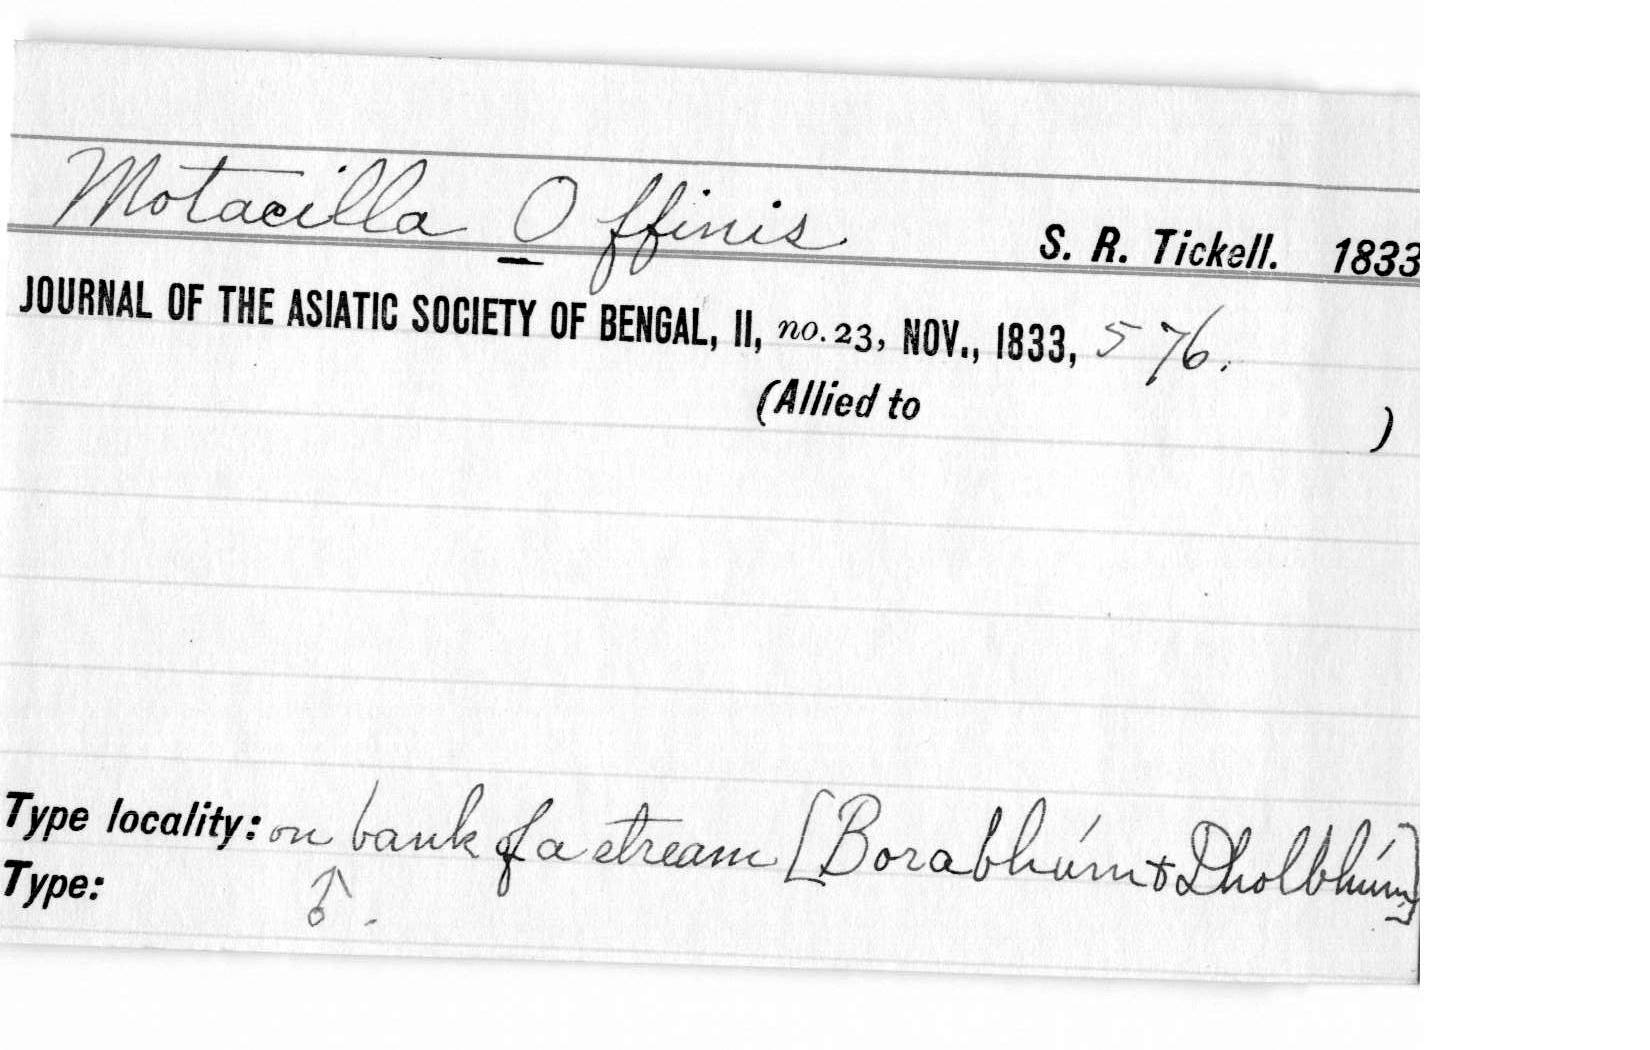 Motacilla Offinis S. R. Tickell. 1833
JOURNAL OF THE ASIATIC SOCIETY OF BENGAL, II, no. 23, NOV., 1833, 576.
(Allied to )
Type locality: on bank of a stream [Borabhúm & Dholbhúm]
Type: ♂.